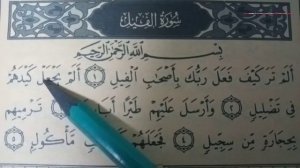 سُورَةُ الْفِيلِ
بِسْمِ اللَّهِ الرَّحْمَٰنِ الرَّحِيمِ
أَلَمْ تَرَ كَيْفَ فَعَلَ رَبُّكَ بِأَصْحَابِ الْفِيلِ ١ أَلَمْ يَجْعَلْ كَيْدَهُمْ
فِي تَضْلِيلٍ ٢ وَأَرْسَلَ عَلَيْهِمْ طَيْرًا تَرْمِيهِمْ
بِحِجَارَةٍ مِنْ سِجِّيلٍ ٤ فَجَعَلَهُمْ مَأْكُولٍ